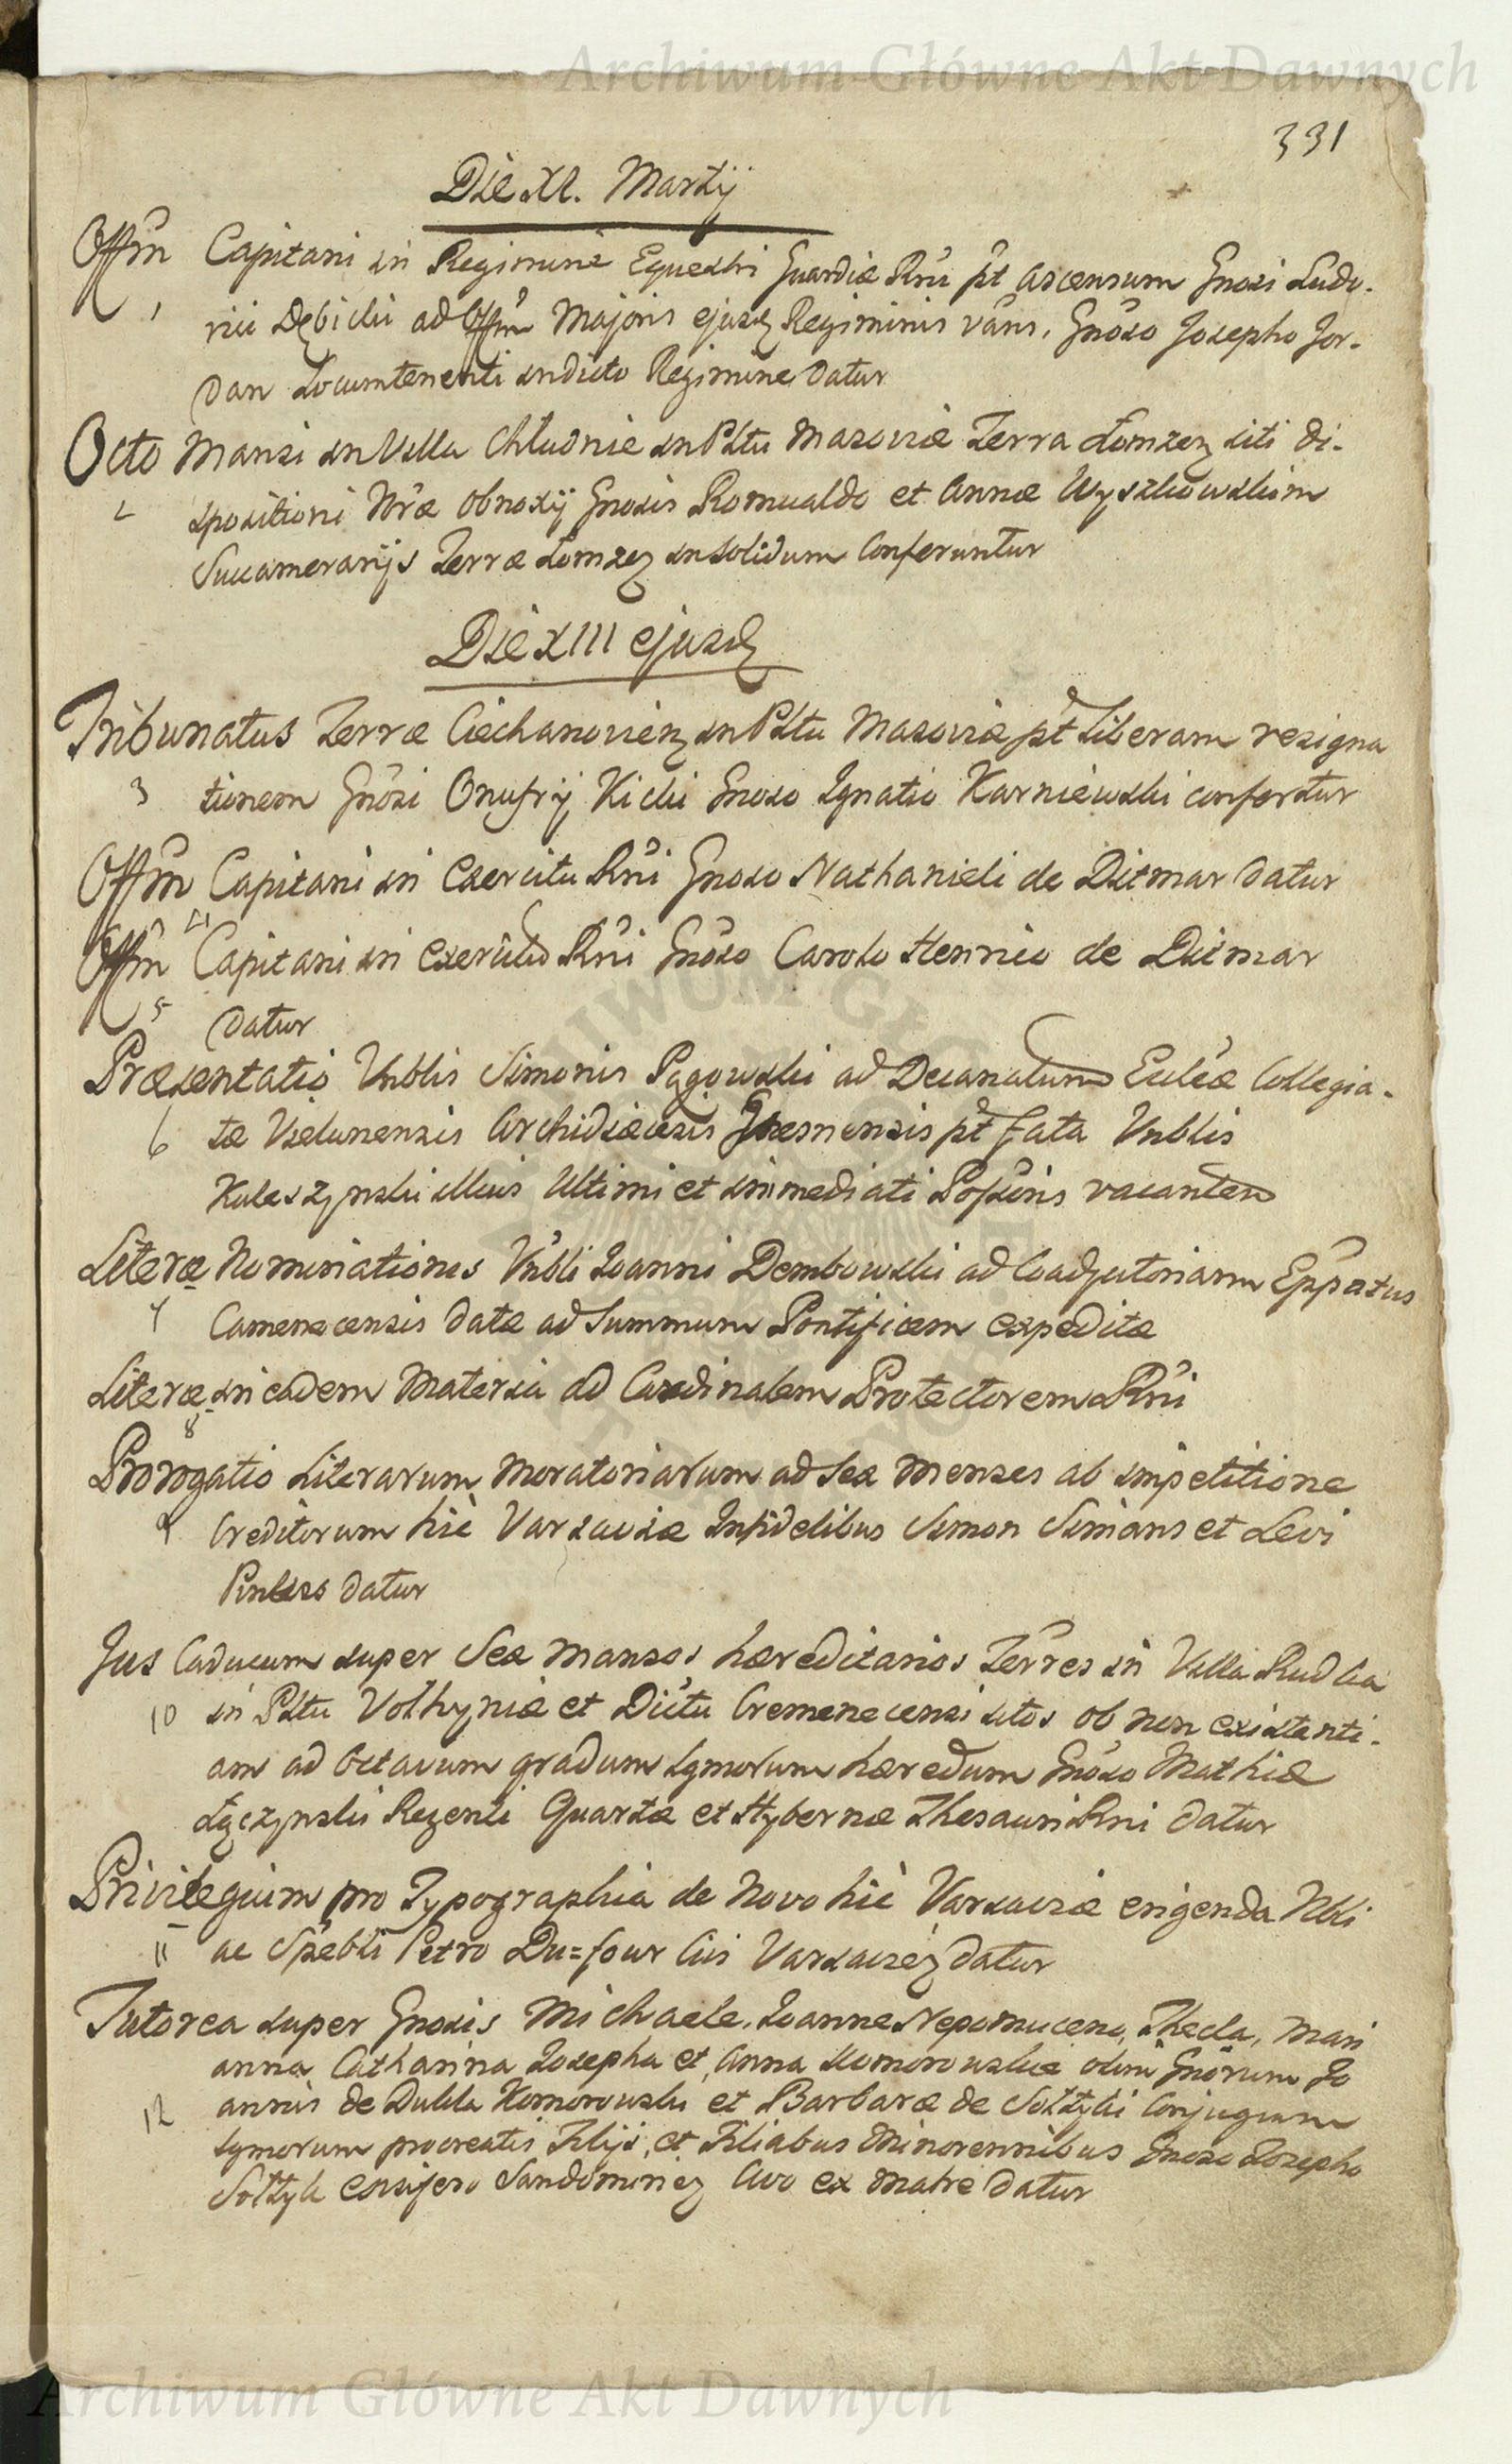 Archiwum Główne Akt Dawnych
331
Die XI. Martij
Offm Capitani in Regimine Equestri Guardiæ Rni pt ascensum Gnosi Ludo-
1 vici Dębicki ad Offm Majoris ejusd Regiminis vans, Gnoso Josepho Jor-
dan Locumtenenti in dicto Regimine datur
Octo Mansi in Villa Chludnie in Pltu Masoviæ Terra Łomzen siti di-
2 spositioni Nræ obnoxij Gnosis Romualdo et Annæ Wyszkowskim
Succamerarijs Terræ Łomzen in solidum Conferuntur
Die XIII ejusd
Tribunatus Terræ Ciechanovien in Pltu Masoviæ pt Liberam resigna
3 tionem Gnosi Onufrij Kicki Gnoso Ignatio Karniewski confertur
Offm Capitani in Exercitu Rni Gnoso Nathanieli de Ditmar datur
4
Offm Capitani in Exercitu Rni Gnoso Carolo Henrico de Ditmar
5 datur
Præsentatio Vnblis Simonis Pągowski ad Decanatum Eccleæ Collegia-
6 tæ Vielunensis Archidiæcesis Gnesnensis pt Fata Vnblis
Kuleszynski illius Ultimi et immediati Possoris vacantem
Literæ Nominationis Vnbli Joanni Dembowski ad Coadjutoriam Eppatus
7 Camenecensis datæ ad Summum Pontificem expeditæ
Literæ in eadem Materia ad Cardinalem Protectorem Rni
8
Prorogatio Literarum Moratoriarum ad Sex Menses ab impetitione
9 Creditorum hic Varsaviæ Infidelibus Simon Simons et Levi
datur
Jus Caducum super Sex Mansos hæreditarios Terres in Villa Rudka
10 in Pltu Volhyniæ et Dictu Cremenecensi sitos ob non existenti-
am ad Octavum gradum Lgmorum hæredum Gnoso Mathiæ
Łęczynski Regenti Quartæ et Hybernæ Thesauri Rni datur
Privilegium pro Typographia de Novo hic Varsaviæ erigenda Nbli
11 ac Spebli Petro Du=four Civi Varsavien datur
Tutorea super Gnosis Michaele, Joanne Nepomuceno, Thecla, Mari
anna, Catharina Josepha et Anna Komorowskie olim Gnorum Jo
12 annis de Dukla Komorowski et Barbaræ de Sołtyki Conjugum
Lgmorum procreatis Filijs, et Filiabus Minorennibus Gnoso Josepho
Sołtyk Ensifero Sandomirien Avo ex Matre datur
Archiwum Główne Akt Dawnych